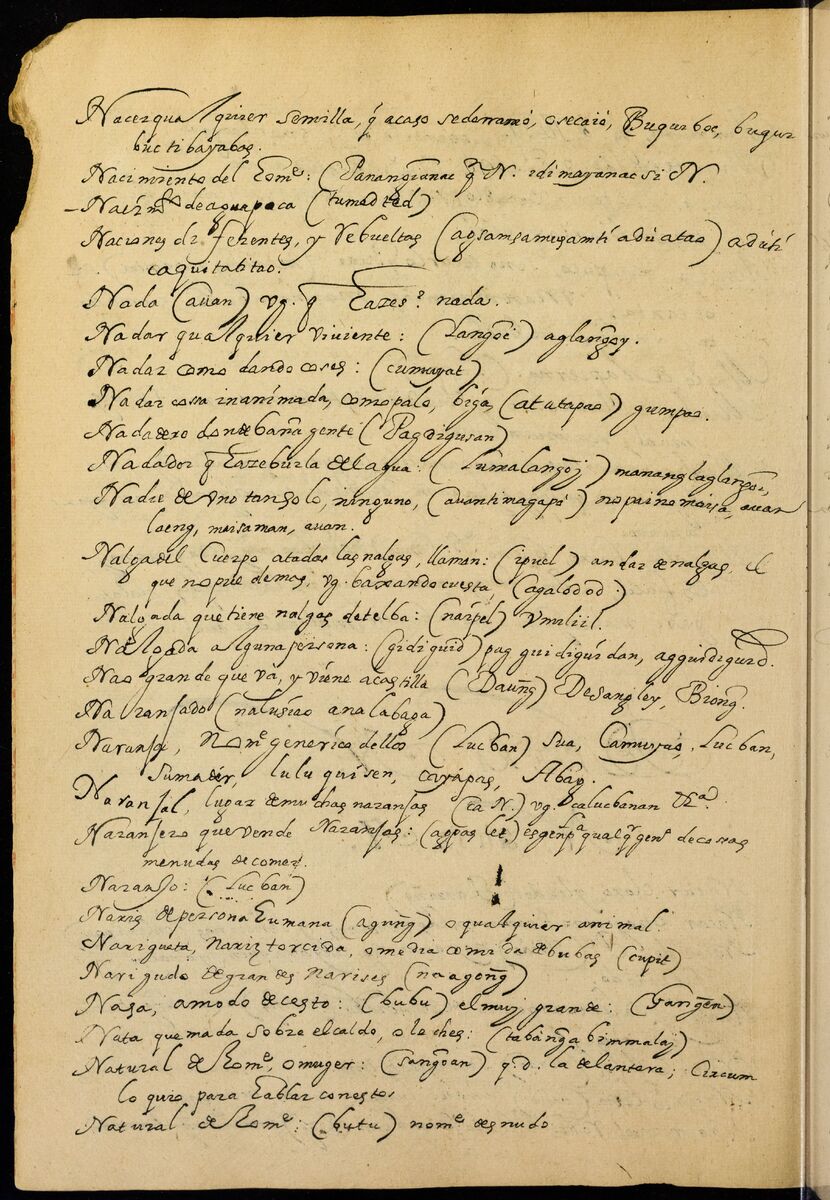 Nacer qualquier semilla, q̃ acaso sederramó, o secaió, Bugur boc, bugur
buctibayabas.
Nacimiento del home: (Panangianac q̃ N. idimayanac si N.
Nacimto de agua poca (tumedted)
Naciones diferentes, y rebueltas (agsamsamusamti aduatao) aduti
caquitatitao.
Nada (auan) vg. q̃ hazes? nada.
Nadar qualquier viviente: (Langoi) aglangoy.
Nadar como dando coses: (cumuyat)
Nadar cossa inanimada, como palo, biga, (atutapao) gumpao.
Nadadero donde baña gente (Pagdigusan)
Nadador q̃ haze burla del agua: (Lumalangoj) mananglaglangoi,
Nadie de vno tan solo, ninguno, (auantimagapó) nopaino maisa, auan
laeng, maisaman, auan.
Nalga del Cuerpo atadas las nalgas, llaman: (ipuel) andar de nalgas, el
que no puede mas, vg. baxando cuesta, (agalodod)
Nalgada que tiene nalgas detelba: (naipel) vmiliil.
Nalgada alguna persona: (gidiguid) pag guidiguidan, agguidiguid.
Nao grande que va, y viene a castilla (Daung) De sangley, Biong.
Naransado (nalusiao analabaga)
Naranja, Nome generico dellos (Lucban) sua, Camuyao, Lucban,
sumader, lulu quisen, cayapas, Abag.
Naranjal, lugar de muchas naranjas (ca N.) vg. calucbanan &ra
Naranjero que vende Naranjas: (agpas lec) es genpa qualqr genro de cosas
menudas de comer.
Naranjo: (Lucban)
Nariz de persona humana (agung) o qualquier animal.
Narigueta, nariz torcida, o media comida de bubas (cupit)
Narigudo de grandes narises (naagong)
Nasa, a modo de cesto: (bubu) el muj grande: (Garigen)
Nata quemada sobre el caldo, o leches: (tabanga bimmalaj)
Natural de home, o muger: (sangoan) q. d. la delantera; Circum
loquio para hablar conestos
Natural de home: (butu) nome desnudo